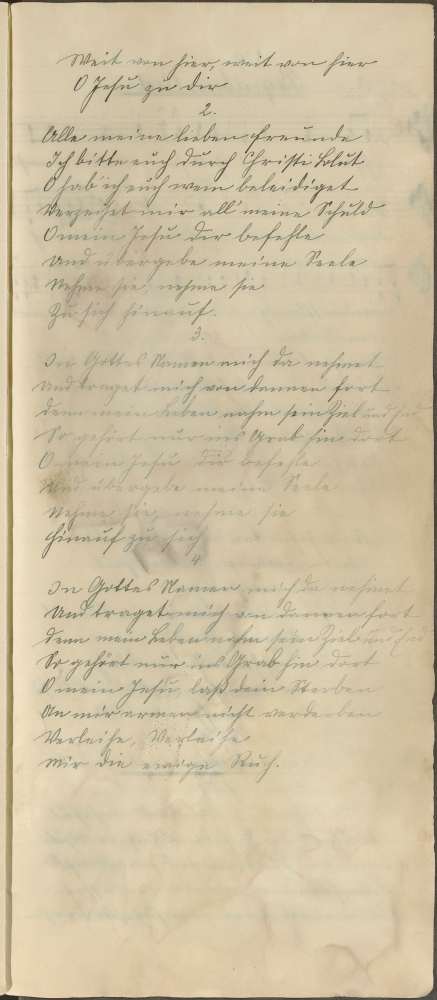 Weit von hier, weit von hier
O Jesu zu dir
2.
Alle meine lieben Freunde
Ich bitte euch durch Christi Blut
O hab ich euch wem beleidiget
Verzeihet mir all' meine Schuld
O mein Jesu dir befehle
Und übergebe meine Seele
Nehme sie, nehme sie
Zu sich hinauf.
3.
In Gottes Namen mich da nehmet
und traget mich von dannen fort
denn mein Leben nahm sein Ziel und End
So gehört nur ins Grab hin dort
O mein Jesu dir befehle
Und übergebe meine Seele
Nehme sie, nehme sie
hinauf zu sich
4
In Gottes Namen mich da nehmet
Und traget mich von dannen fort
denn mein Leben nahm sein Ziel und End
So gehört nur ins Grab hin dort
O mein Jesu, laß dein Sterben
An mir armen nicht verderben
Verleihe, Verleihe
mir die ewige Ruh.